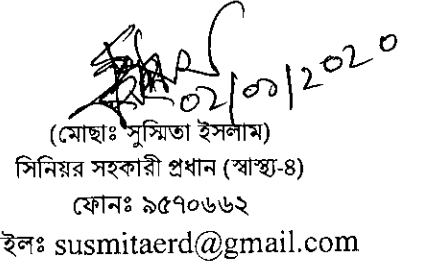 ০২/০৩/২০২০
(মোছাঃ সুস্মিতা ইসলাম)
সিনিয়র সহকারী প্রধান (স্বাস্থ্য-৪)
ফোনঃ ৯৫৭০৬৬২
ইলঃ susmitaerd@gmail.com